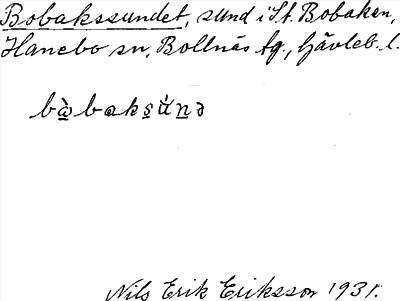 Bobakssundet, sund i St. Bobaken,
Hanebo sn, Bollnäs tg., Gävleb. l.
bàbaksúnə
Nils Erik Eriksson 1931.